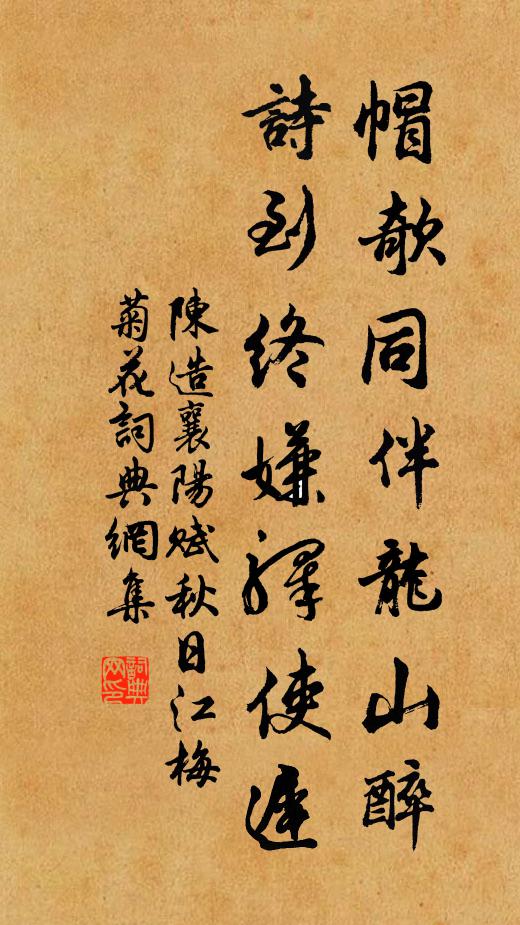 帽欹同伴龍山醉
詩到終嫌驛使遲
陳造襄陽賦秋日江梅
菊花詞典網集
詞典網印